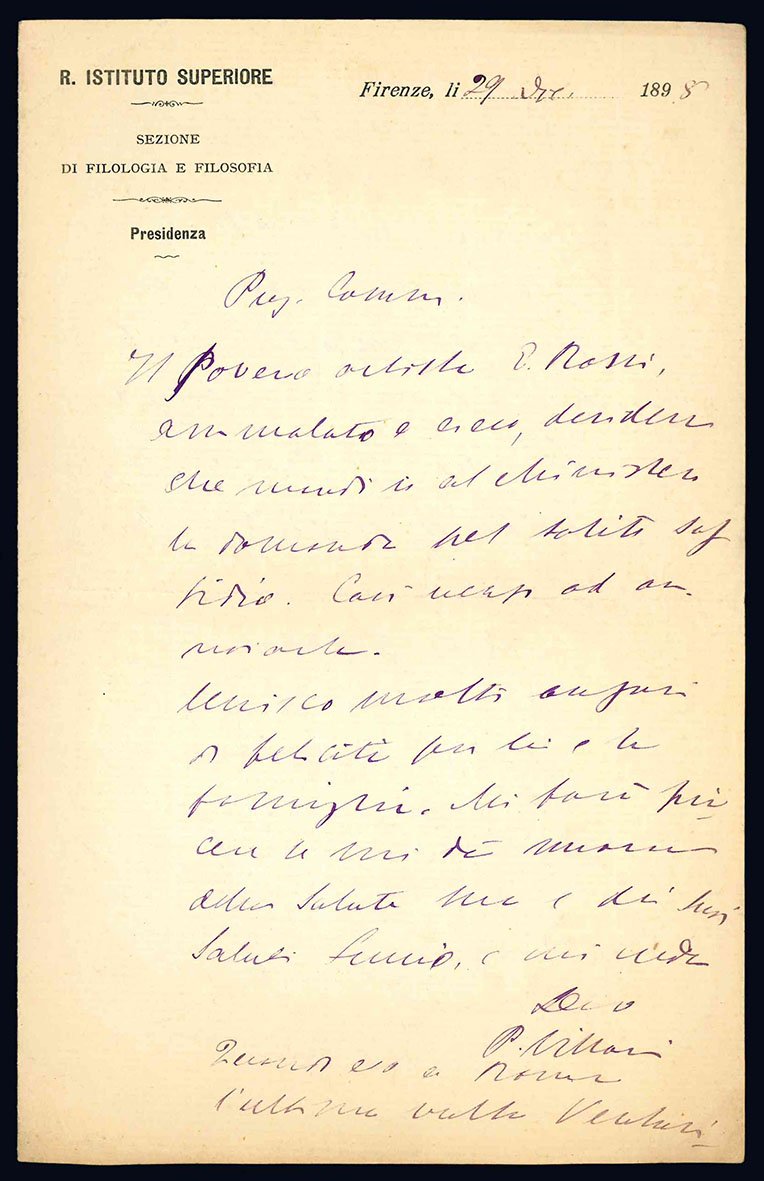 R. ISTITUTO SUPERIORE
SEZIONE
DI FILOLOGIA E FILOSOFIA
Presidenza
Firenze, li 29 Dic. 1898
Preg. Comm.
Il povero artista E. Rossi,
ammalato e cieco, desidera
che mandi io al Ministero
la domanda pel solito sus
sidio. Così vengo ad an-
noiarla.
Unisco molti auguri
di felicità per lei e la
famiglia. Mi farà pia-
cere se mi dà nuove
della salute sua e dei suoi
Saluti , e mi creda
Devo
P. Villari
Quando ero a Roma
l'ultima volta